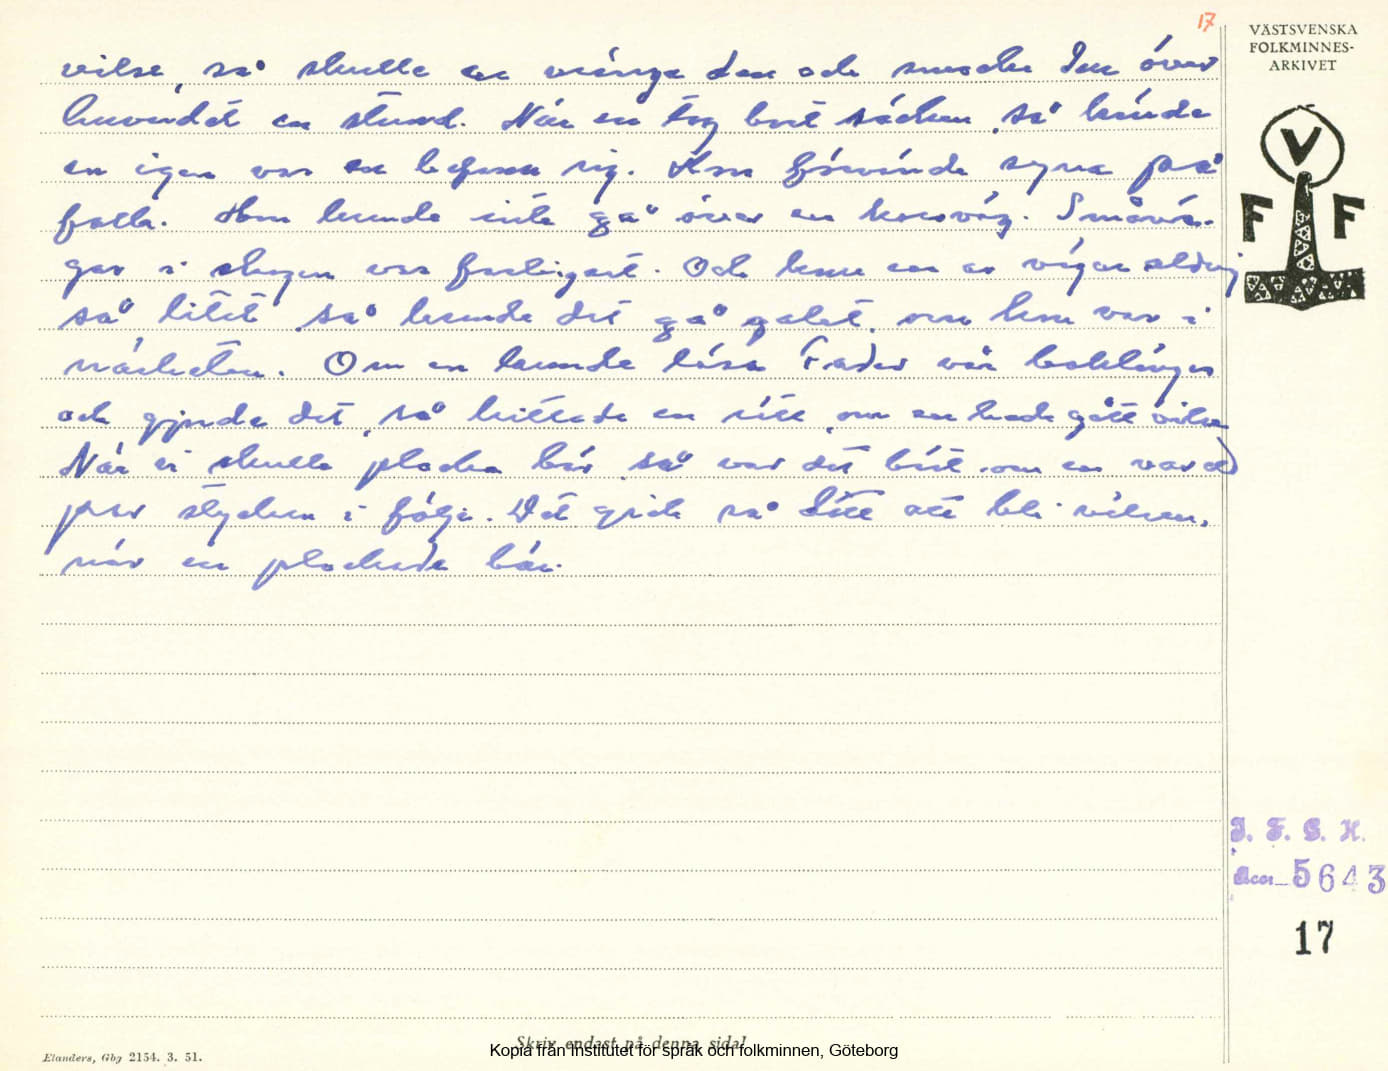 17
VÄSTSVENSKA
FOLKMINNES-
ARKIVET
V
F F
vilse, så skulle en vränga den och den över
huvudet en stund. När en tog bort säcken, så kände
en igen var en befann sig. Hon förvände syna på
folk. Hon kunde inte gå över en korsväg. Småvä-
gar i skogen var farligast. Och kom en av vägen aldrig
så litet, så kunde det gå galet, om hon var i
närheten. Om en kunde läsa Fader vår baklänges
och gjorde det, så hittade en rätt, om en hade gått vilse
När vi skulle plocka bär, så var det bäst om en var ett
par stycken i följe. Det gick så lätt att bli vilsen,
när en plockade bär.
I. F. G. H.
Acc. 5643
17
Skriv endast på denna sida!
Kopia från Institutet för språk och folkminnen, Göteborg
Elanders, Gbg 2154. 3. 51.